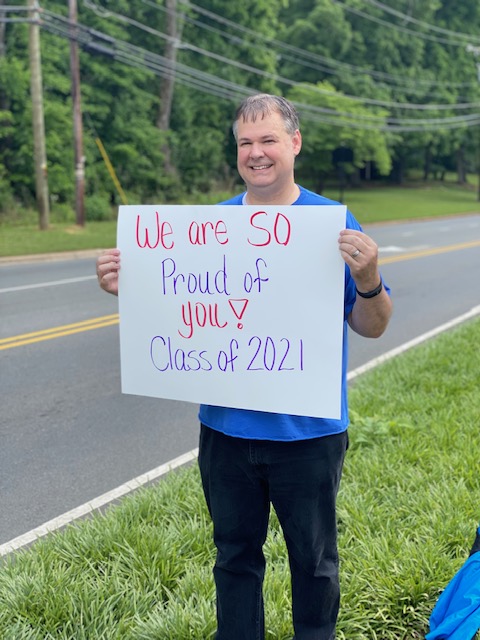 We are SO
Proud of
you!
Class of 2021